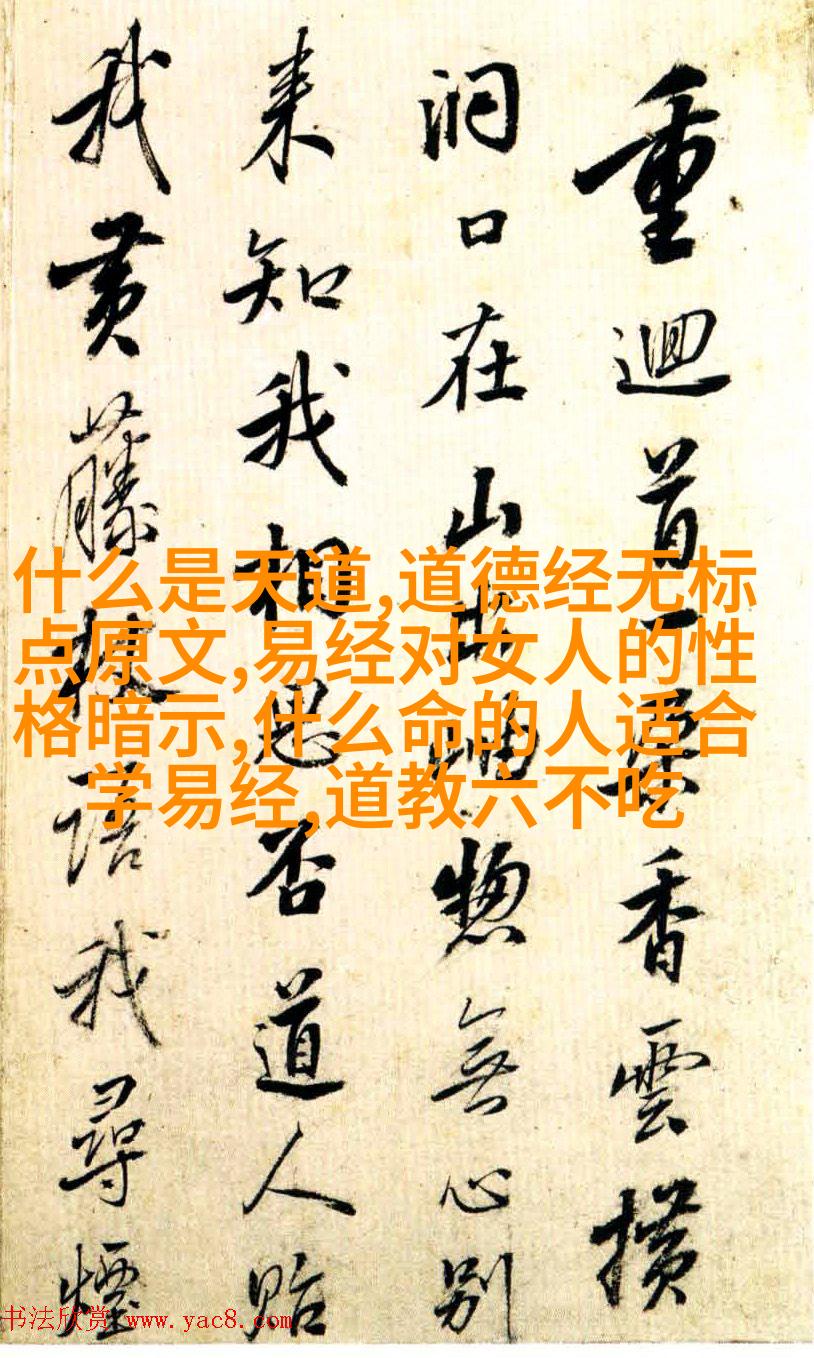 重迴首一香雲横
洞口在山出岫惣無心别
来知我相思否道人貽
我黄藤杖語我尋煙
什么是天道,道德经无标
点原文,易经对女人的性
格暗示,什么命的人适合
学易经,道教六不吃
书法欣赏 www.yac8.com